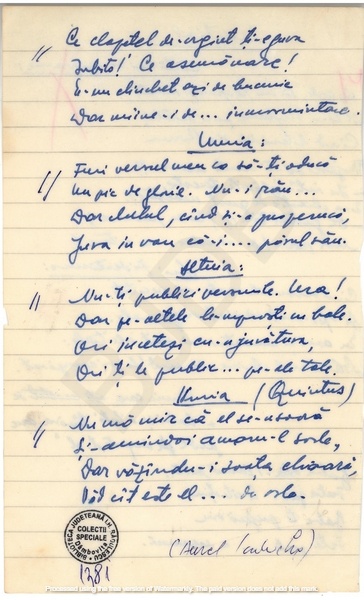 " Ce clopoțel de-argint ți-e gura
Iubito! Ce asemănare!
E-un clinchet azi de bucurie
Dar mîine-i de... înmormîntare.
Unuia:
" Furi versul meu ca să-ți aducă
Un pic de glorie. Nu-i rău...
Dar hoțul, cînd și-a pus perucă,
Jura în van că-i.... părul său.
Altuia:
" Nu-ți publici versurile. Ura!
Dar pe-altele le-mproști cu bale.
Ori încetezi cu-njurătura,
Ori ți le public... pe-ale tale.
Unuia (Quintus)
" Nu mă mir că el se-nsoară
Și-amîndoi amoru-l sorb,
Dar văzîndu-i soața chioară,
Văd cît este el... de orb.
(Aurel
BIBLIOTECA JUDEȚEANĂ I.H. RĂDULESCU
COLECȚII
SPECIALE
Dâmbovița
1381